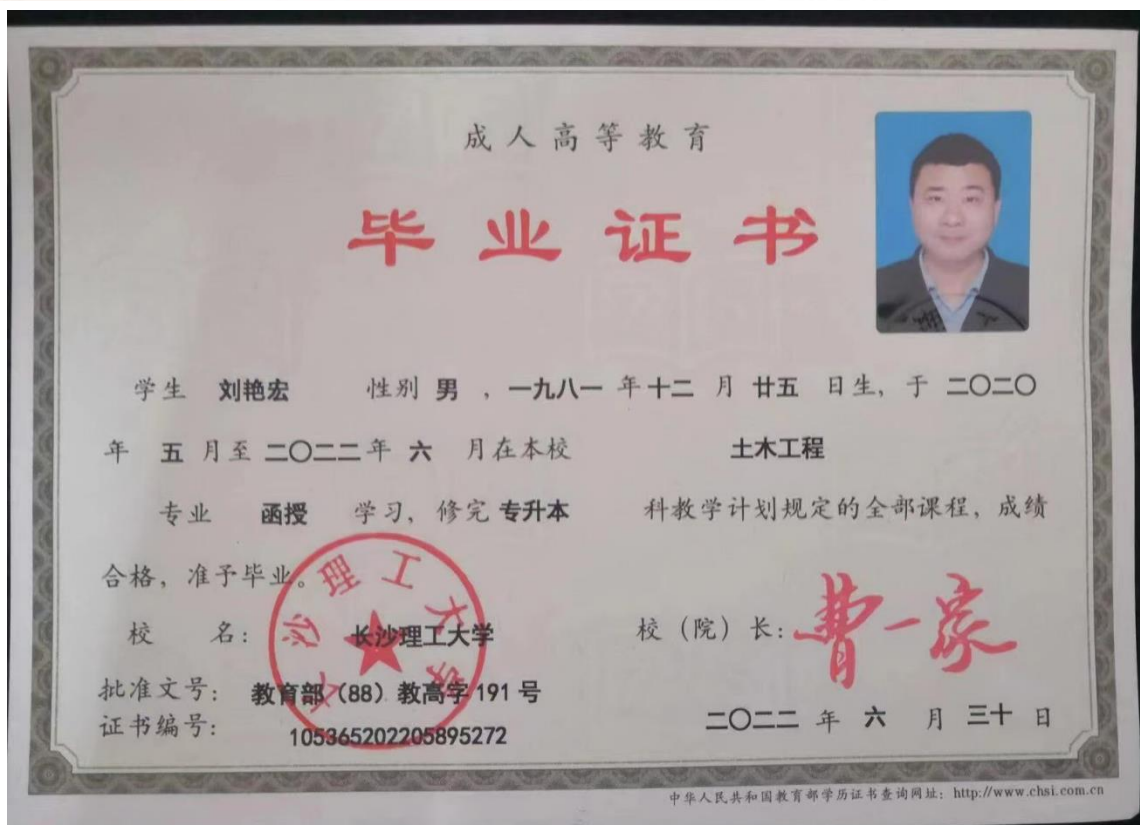 成人高等教育
毕业证书
学生 刘艳宏 性别 男 ，一九八一 年 十二 月 廿五 日生，于 二〇二〇
年 五 月至 二〇二二 年 六 月在本校 土木工程
专业 函授 学习，修完 专升本 科教学计划规定的全部课程，成绩
合格，准予毕业。
校 名： 长沙理工大学
校（院）长： 曹一家
批准文号： 教育部（88）教高字 191 号
证书编号： 105365202205895272
二〇二二 年 六 月 三十 日
长沙理工大学
中华人民共和国教育部学历证书查询网址：http://www.chsi.com.cn